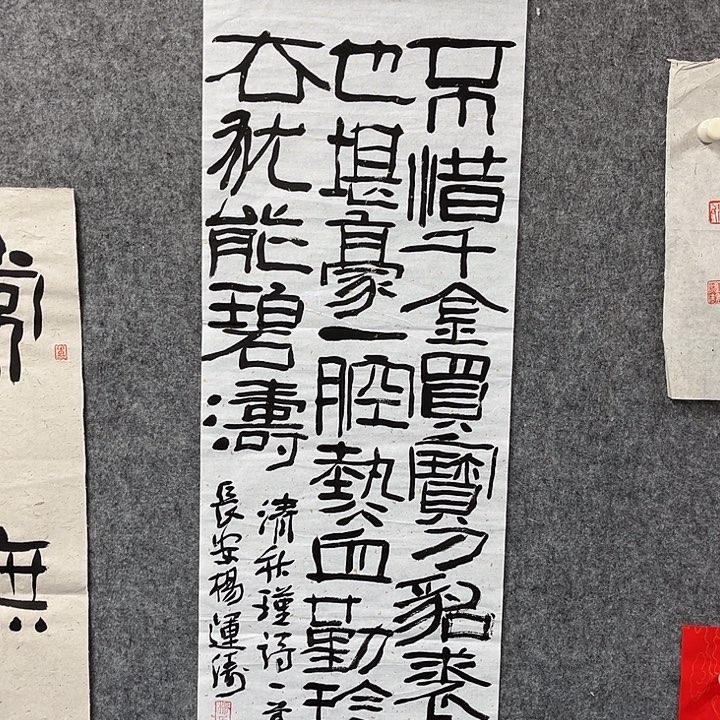 不惜千金買寶刀貂裘
也堪豪一腔熱血勤珍
去犹能碧濤
清秋瑾詩一首
長安楊運濤